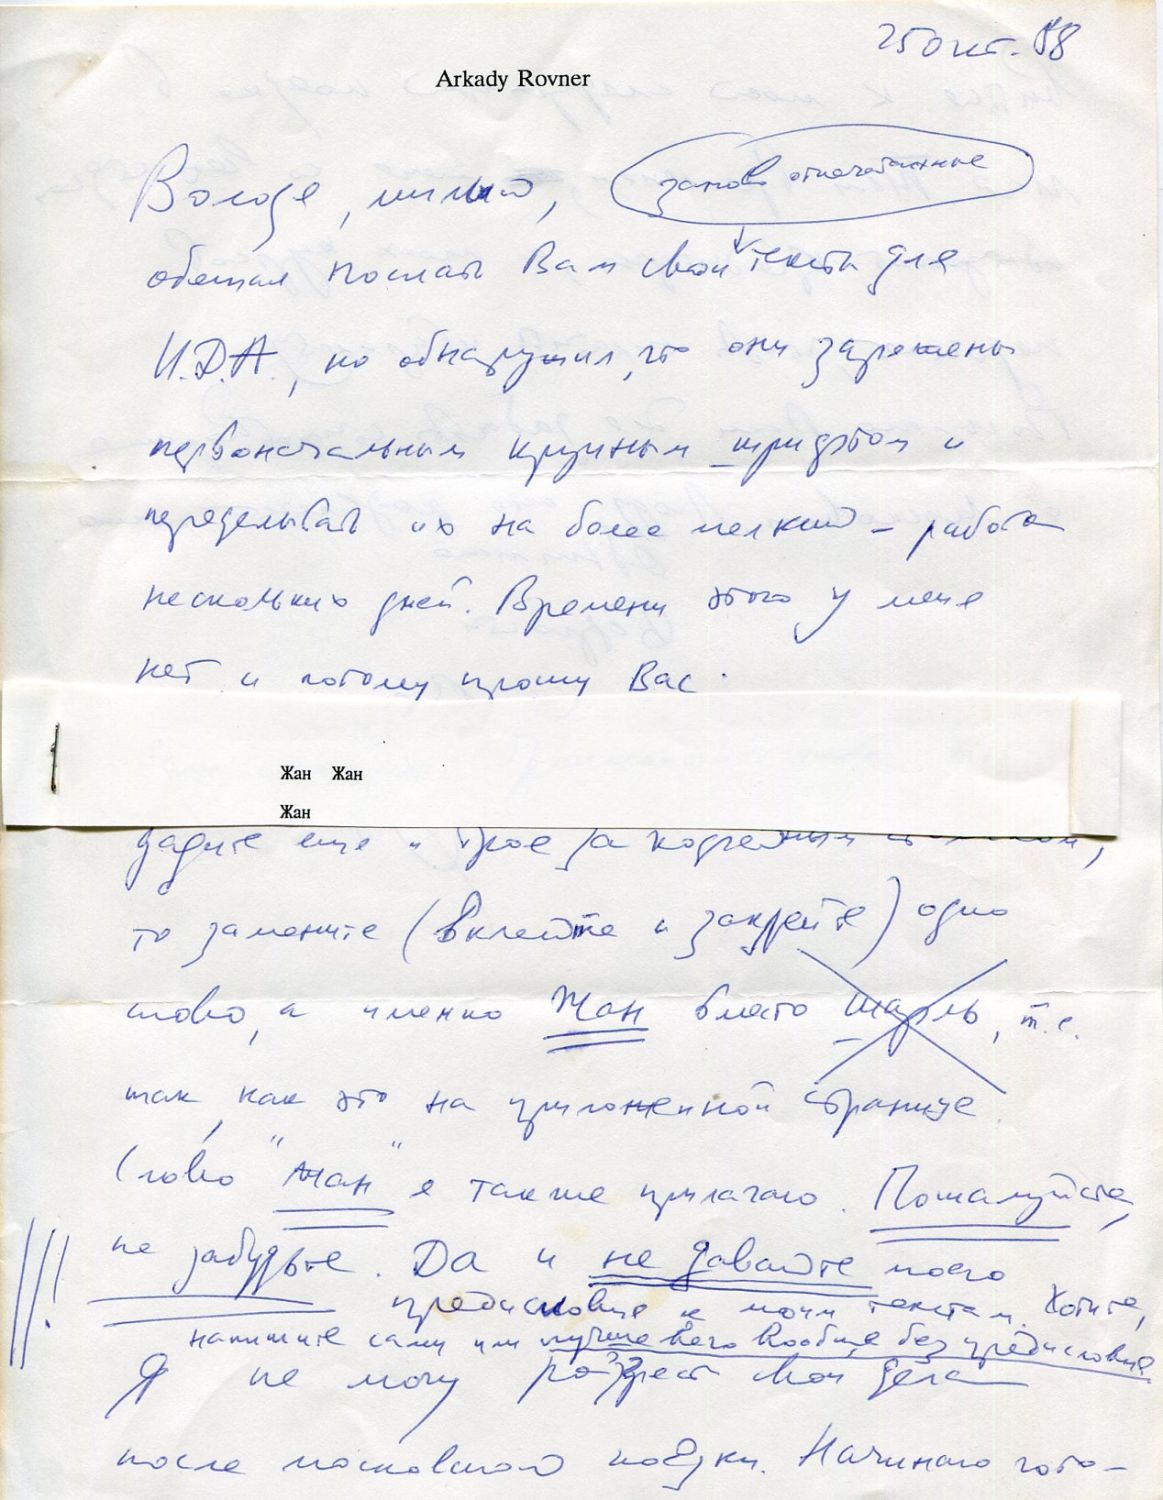 25 окт. 88
Arkady Rovner
Володя, милый,
заново отпечатанные
обещал послать Вам свои тексты для
И.Д.А., но обнаружил, что они заряжены
первоначальным крупным шрифтом и
переделывать их на более мелкий – работа
нескольких дней. Времени этого у меня
нет и потому прошу Вас.
Жан Жан
Жан
дадите еще и
то замените (вклейте и закрейте) одно
слово, а именно Жан вместо Шарль, т.е.
так, как это на приложенной странице.
Слово "Жан" я также прилагаю. Пожалуйста,
не забудьте. Да и не давайте моего
предисловия к моим текстам. Хотите,
напишите сами или лучше всего вообще без предисловия
!!!
Я не могу разгрести свои дела
после московской поездки. Начинаю гото-